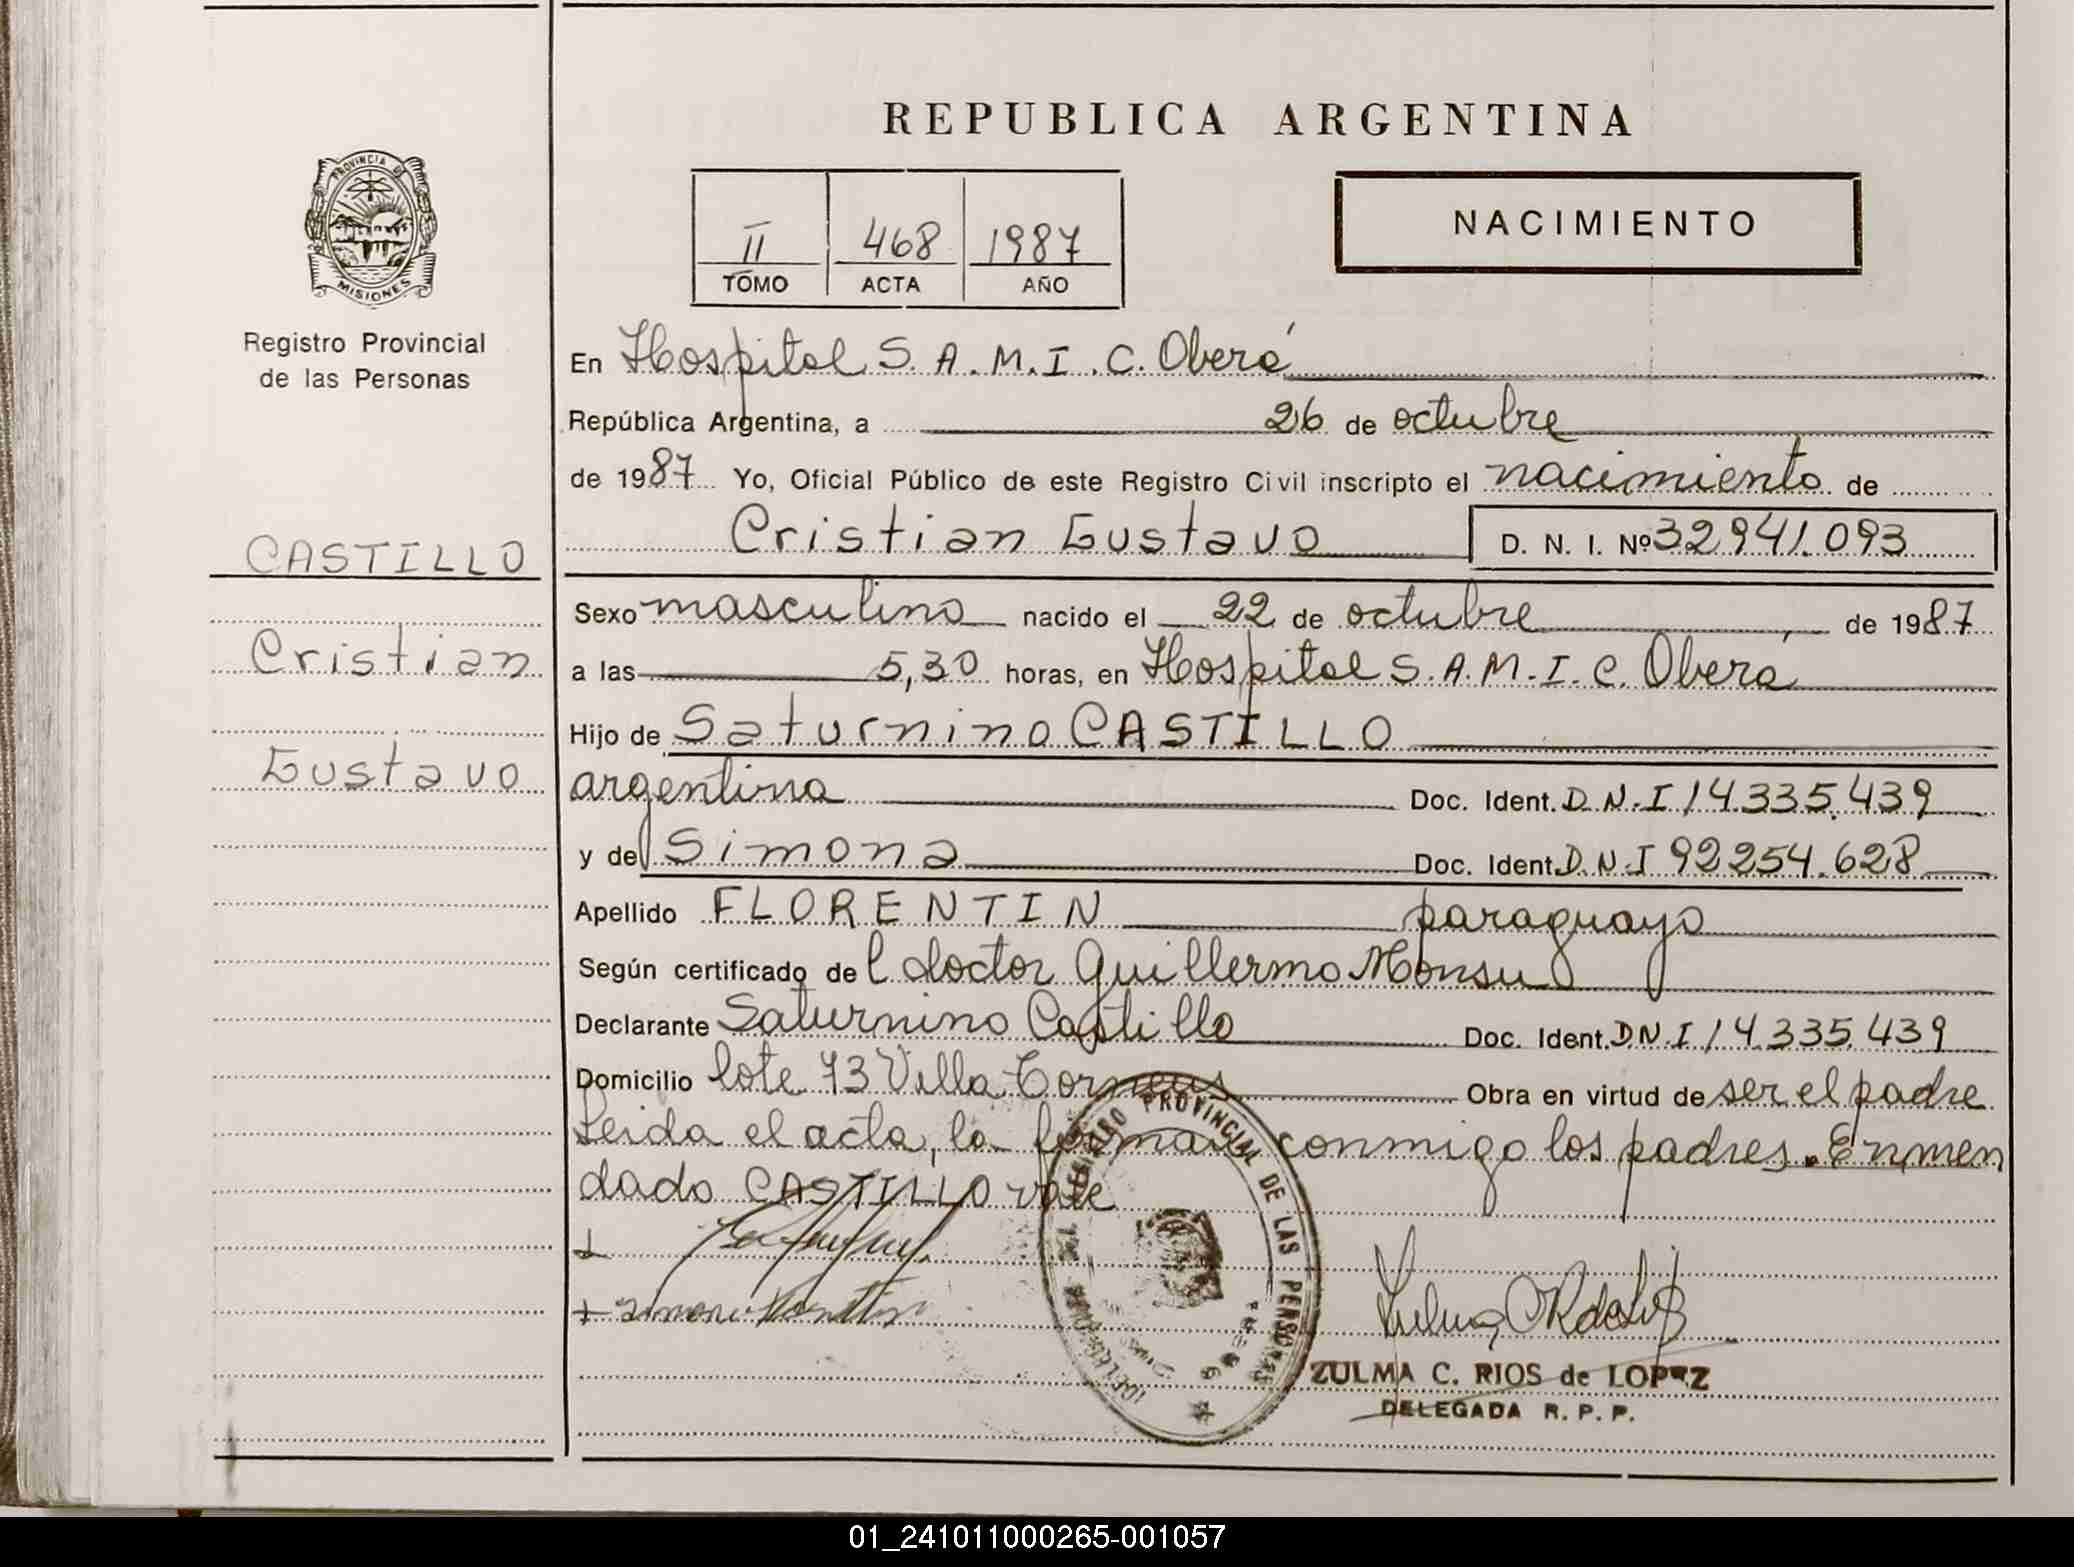 REPUBLICA ARGENTINA
PROVINCIA DE
MISIONES
Registro Provincial
de las Personas
NACIMIENTO
II 468 1987
TOMO ACTA AÑO
En Hospital S.A.M.I.C. Oberá
República Argentina, a 26 de octubre
de 1987 Yo, Oficial Público de este Registro Civil inscripto el nacimiento de
Cristian Gustavo D. N. I. Nº 32941.093
CASTILLO
Cristian
Gustavo
Sexo masculino nacido el 22 de octubre de 1987
a las 5,30 horas, en Hospital S.A.M.I.C. Oberá
Hijo de Saturnino CASTILLO
argentina Doc. Ident. D.N.I 14.335.439
y de Simona Doc. Ident. D.N.I 92254.628
Apellido FLORENTIN paraguaya
Según certificado del doctor Guillermo Monsu
Declarante Saturnino Castillo Doc. Ident. DN.I 14.335.439
Domicilio lote 73 Villa Obra en virtud de ser el padre
Leida el acta, la firman conmigo los padres. Enmen
dado CASTILLO vale
REGISTRO PROVINCIAL DE LAS PERSONAS
ZULMA C. RIOS de LOPEZ
DELEGADA R. P. P.
01_241011000265-001057